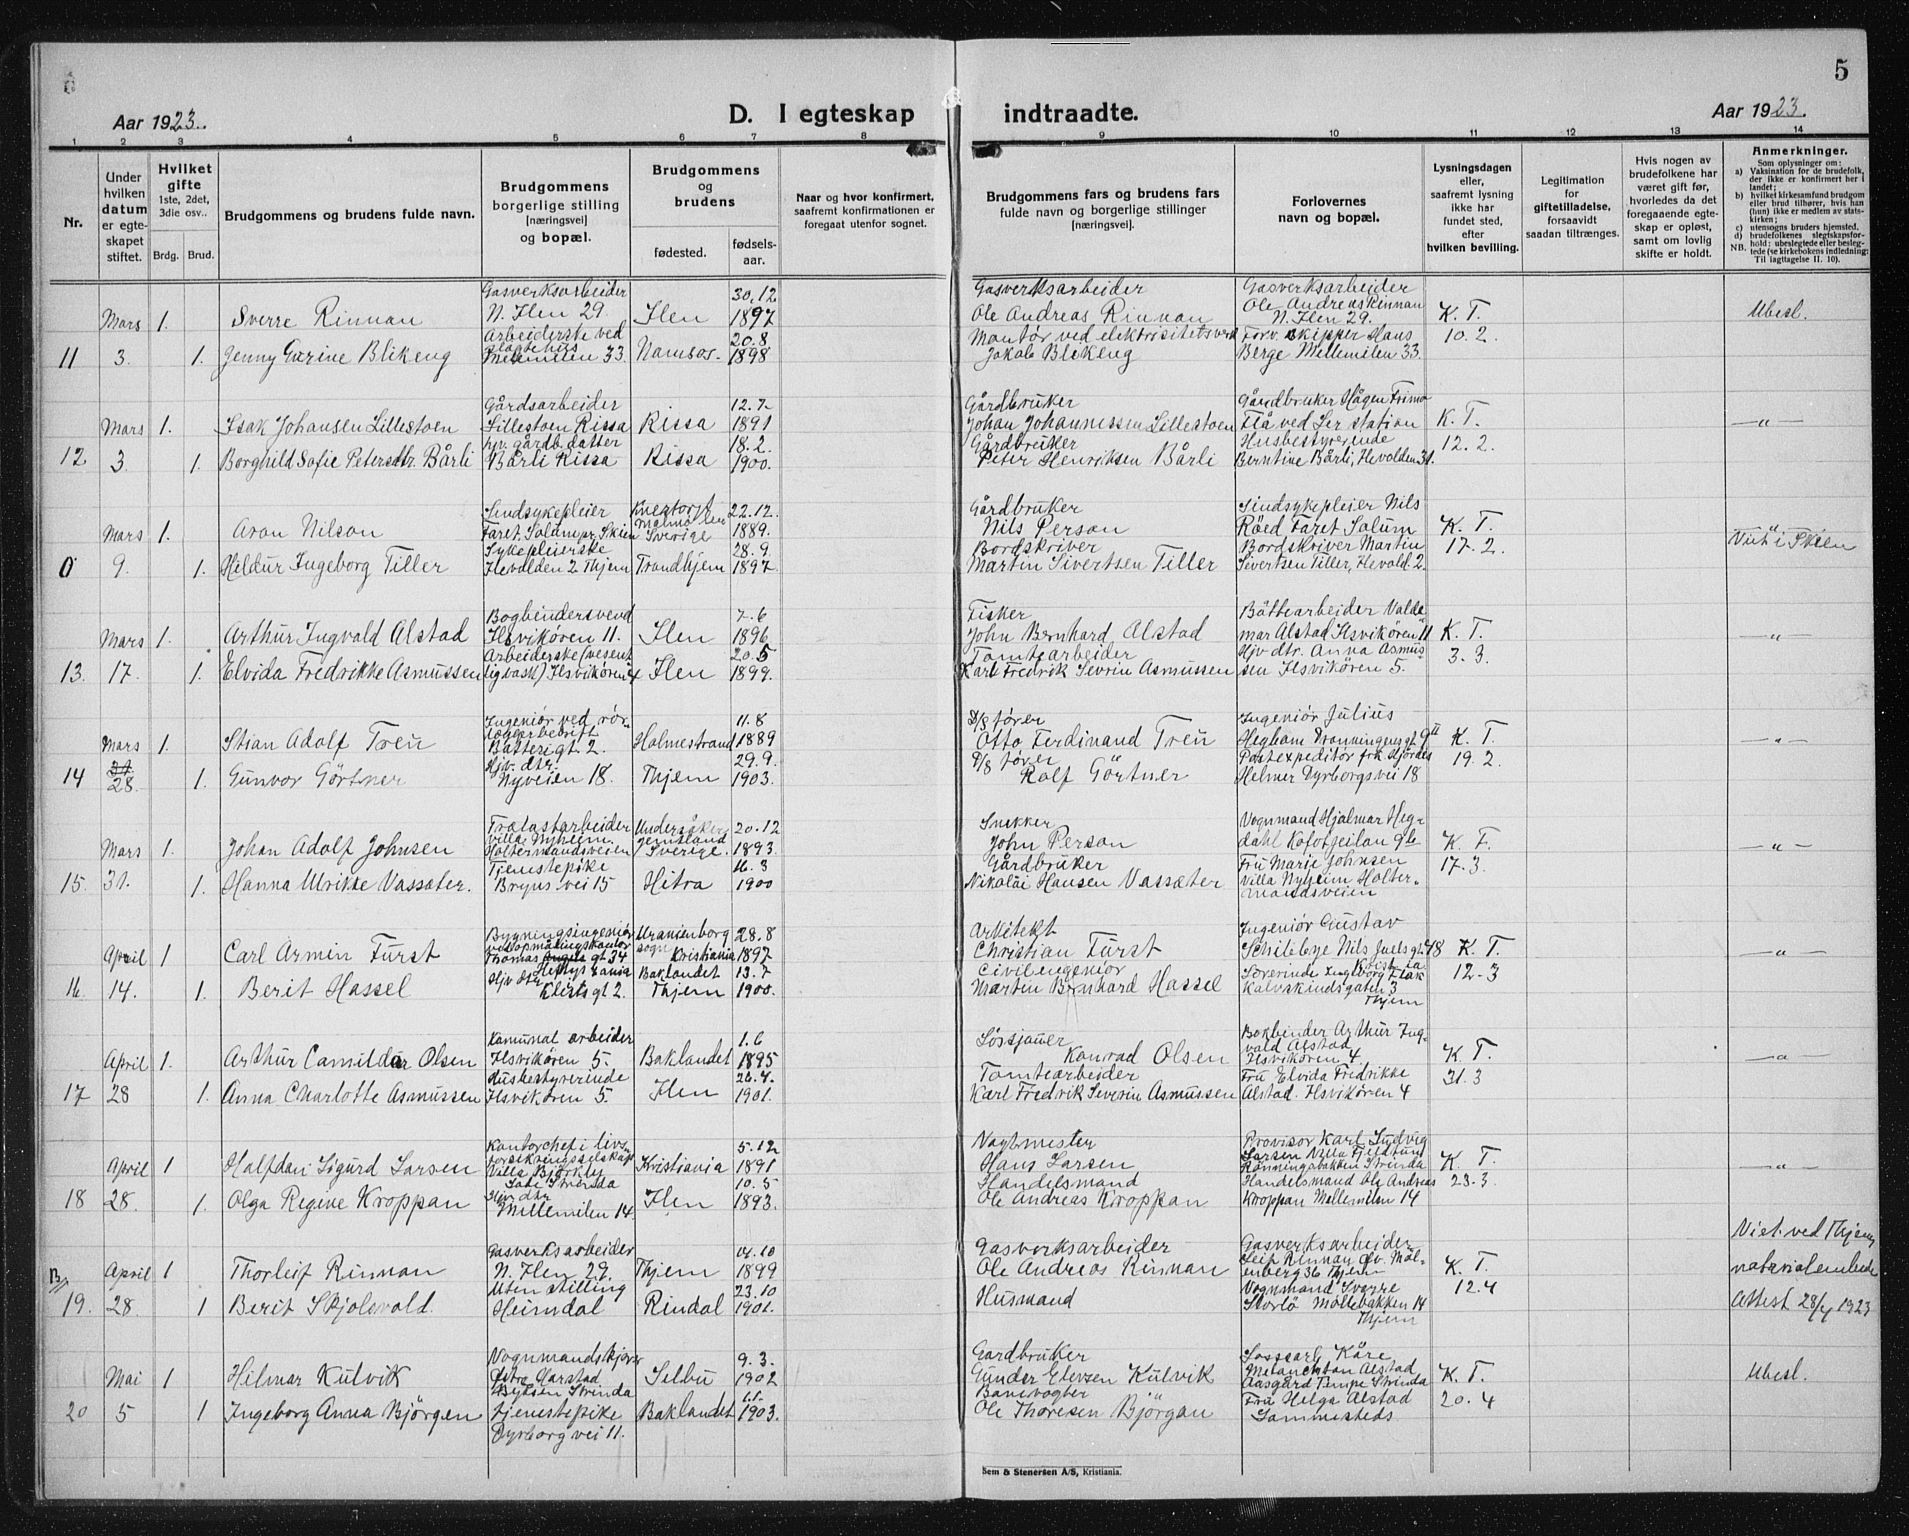 5
Aar 1923.
D. I egteskap
indtraadte.
Aar 1923
1 2 3 4 5 6 7 8 9 10 11 12 13 14
Nr.
Under hvilken datum er egteskapet stiftet.
Hvilket gifte 1ste, 2det, 3die osv..
Brdg. Brud.
Brudgommens og brudens fulde navn.
Brudgommens borgerlige stilling [næringsvei] og bopæl.
Brudgommens og brudens
fødested.
fødsels-aar.
Naar og hvor konfirmert, saafremt konfirmationen er foregaat utenfor sognet.
Brudgommens fars og brudens fars fulde navn og borgerlige stillinger [næringsvei].
Forlovernes navn og bopæl.
Lysningsdagen eller, saafremt lysning ikke har fundet sted, efter hvilken bevilling.
Legitimation for giftetilladelse, forsaavidt saadan tiltrænges.
Hvis nogen av brudefolkene har været gift før, hvorledes da det foregaaende egteskap er opløst, samt om lovlig skifte er holdt.
Anmerkninger.
Som oplysninger om:
a) Vaksination for de brudefolk, der ikke er konfirmert her i landet;
b) hvilket kirkesamfund brudgom eller brud tilhører, hvis han (hun) ikke er medlem av statskirken;
c) utensogns bruders hjemsted.
d) brudefolkenes slegtskapsforhold: ubeslegtede eller beslegtede (se kirkebokens indledning:
NB. Til iagttagelse II. 10).
Gasverksarbeider 30.12 Gasverksarbeider Gasverksarbeider
Mars 1. Sverre Rinnan N. Ilen 29. Ilen 1897 Ole Andreas Rinnan Ole Andreas Rinnan N. Ilen 29. K. T. Ubesl.
Arbeiderske ved 20.8 Montør ved elektrisitetsverk Forv. skipper Hans 10.2.
11 3. 1. Jenny Gærine Blikeng slagtehus Mellemilen 33. Namsos 1898 Jakob Blikeng Berge Mellemilen 33.
Gårdsarbeider 12.7 Gårdbruker Gårdbruker Hågen Trimo
Mars 1. Isak Johansen Lillestøen Lillestøen Rissa Rissa 1891 Johan Johannessen Lillestøen Flå ved Ler station K. T. —"—
hjv. gårdb. datter 18.2. Gårdbruker Husbestyrerinde 12.2.
12 3 1. Borghild Sofie Petersdtr. Bårli Bårli Rissa Rissa 1900. Peter Henriksen Bårli Berntine Bårli, Hevolden 31.
Sindsykepleier 22.12. Gårdbruker Sindsykepleier Nils
Mars 1. Aron Nilson Faret, Solum pr. Skien Malmø len Sverige 1889. Nils Person Röed Faret Solum K. T. Viet i Skien
Sykepleierske 28.9. Bordskriver Bordskriver Martin 17.2.
0 9. 1. Hildur Ingeborg Tiller Hevolden 2 Thjem Trondhjem 1897. Martin Sivertsen Tiller Sivertsen Tiller, Hevold. 2.
Bogbindersvend 7.6 Fisker Båttearbeider Valde
Mars 1. Arthur Ingvald Alstad Ilsvikören 11. Ilen 1896 John Bernhard Alstad mar Alstad Ilsvikören 11 K. T. —"—
Arbeiderske (vesent 20.5 Tomtearbeider Hjv. dtr. Anna Asmus 3.3.
13. 17. 1. Elvida Fredrikke Asmussen lig vask) Ilsvikören 4 Ilen 1899. Karl Fredrik Severin Asmussen sen Ilsvikören 5.
Ingeniör ved rör- 11.8 D/s förer Ingeniör Julius
Mars 1. Stian Adolf Treu læggerbedrift Batterigt 2. Holmestrand 1889 Otto Ferdinand Treu Hegbom Dronningensgt 9 II K. T. —"—
Hjv. dtr. 29.9. D/s förer Postexpeditör frk. Hjördis 19.2.
14 31 28. 1. Gunvor Görtner Nyveien 18. Thjem 1903. Rolf Görtner Helmer Dyrborgsvei 18
Trælastarbeider 20.12 Snekker Vognmand Hjalmar Heg-
Mars 1. Johan Adolf Johnsen villa Nyheim Holtermandsveien Jemtland Sverige. 1893. John Person dahl Kofotgeilan 9b K. T. —"—
Tjenestepike 16.3 Gårdbruker Fru Marie Johnsen 17.3.
15. 31. 1. Hanna Ulrikke Vassæter. Bryns vei 15 Hitra 1900 Nikolai Hansen Vassæter villa Nyheim Holter-
mandsveien
Bygningsingeniör Uranienborg 28.8 Arkitekt Ingeniör Gustav
April 1 Carl Armin Fürst ved opmålingskontor Thomas Angels gt. 34 sogn Kristiania 1897 Christian Fürst Schibbye Nils Juelsgt. 48 K. T. —"—
Hjv dtr Baklandet 13.7 Civilingeniör 12-3
16. 14. 1 Berit Hassel gt 2. Thjem 1900. Martin Bernhard Hassel Kalvskindsgaten 3
Thjem
Komunal arbeider 1.6 Losjauer Bokbinder Arthur Ing-
April 1. Arthur Camildar Olsen Ilsvikören 5 Baklandet 1895 Konrad Olsen vald Alstad Ilsvikören 4 K. T. —"—
Husbestyrerinde 26.4. Tomtearbeider Fru Elvida Fredrikke 31.3
17 28 1. Anna Charlotte Asmussen Ilsvikören 5. Ilen 1901. Karl Fredrik Severin Asmussen Alstad. Ilsvikören 4
Kontorchef i livs 5.12 Vagtmester Provisor Karl Ludvig
April 1 Halfdan Sigurd Larsen forsikringsselskap Villa Björkly Kristiania 1891 Hans Larsen Larsen Villa Rönningsbakken Strinda K. T. —"—
Lade Strinda Hjv. dtr 10.5 Handelsmand Handelsmand Ole Andreas 23.3.
18 28. 1. Olga Regine Kroppan Mellemilen 14. Ilen 1893. Ole Andreas Kroppan Kroppan Mellemilen 14
Gasverksarbeider 14.10 Gasverksarbeider Gasverksarbeider Viet ved Thjems
April 1 Thorleif Rinnan N. Ilen 29. Thjem 1899 Ole Andreas Rinnan Leif Rinnan Öv. Möl-lenberg 36 Thjem K. T. notarialembede
Uten stilling 23.10 Vognmand Sverre 12.4
19. 28. 1 Berit Skjolsvold. Heimdal Rindal 1901. Husmand Storlö Möllebakken 14 Attest 28/4 1923
Thjem
Vognmandskjörer 9.3. Gardbruker Kåre
Mai 1 Hilmar Kulvik Harstad Selbu 1902 Gunder Elevsen Kulvik Melanchton Alstad K. T. Ubesl.
Strinda Banevogter Aasgård Tempe Strinda
20 5 1 Ingeborg Anna Björgen tjenestepike Baklandet 1903. Ole Thoresen Björgan Fru Helga Alstad 20.4
Dyrborg vei 11. Sammesteds
Sem & Stenersen A/S, Kristiania.